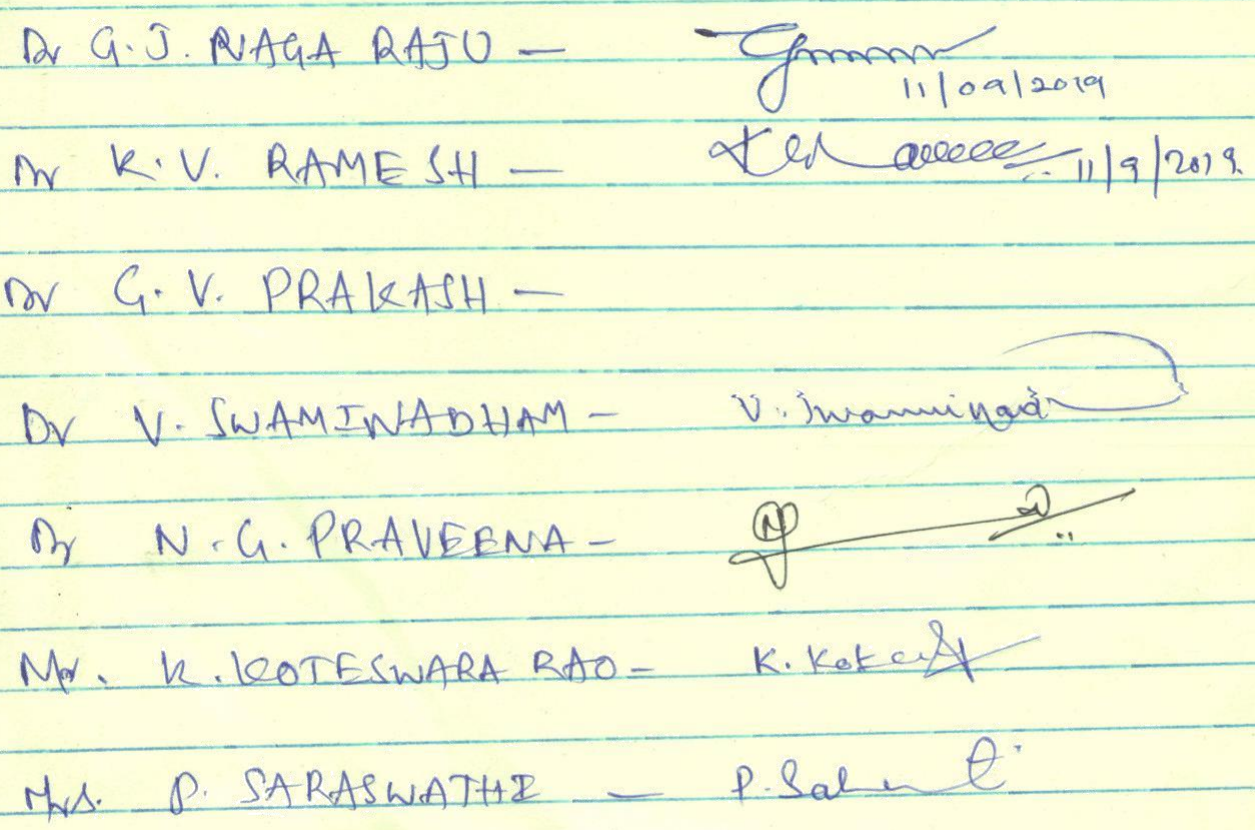 Dr G.J. NAGA RAJU —
11/09/2019
Dr K.V. RAMESH — 11/9/2019
Dr G.V. PRAKASH —
Dr V. SWAMINADHAM — V. Swaminad
Dr N.G. PRAVEENA —
Mr. K. KOTESWARA RAO — K. Kote
Mrs. P. SARASWATHI — P.